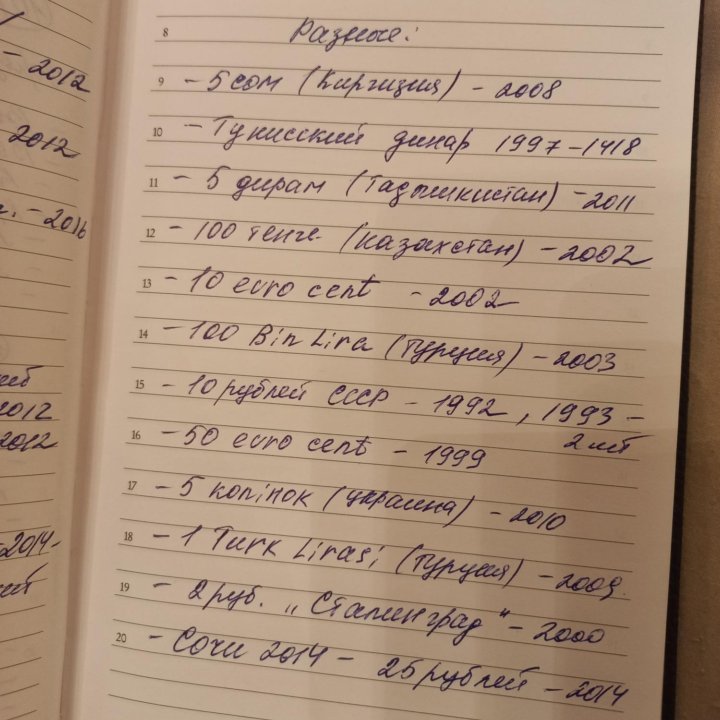 - 2012
2012
. - 2016
2012
2012
- 2014 -
8 Разные:
9 - 5 сом (Киргизия) - 2008
10 - Тунисский динар 1997 - 1418
11 - 5 дирам (Таджикистан) - 2011
12 - 100 тенге (Казахстан) - 2002
13 - 10 evro cent - 2002
14 - 100 Bin Lira (Турция) - 2003
15 - 10 рублей СССР - 1992, 1993 -
2 шт
16 - 50 evro cent - 1999
17 - 5 копiнок (украина) - 2010
18 - 1 Turk Lirasi (Турция) - 2009
19 - 2 руб. „Сталинград" - 2000
20 - Сочи 2014 - 25 рублей - 2014